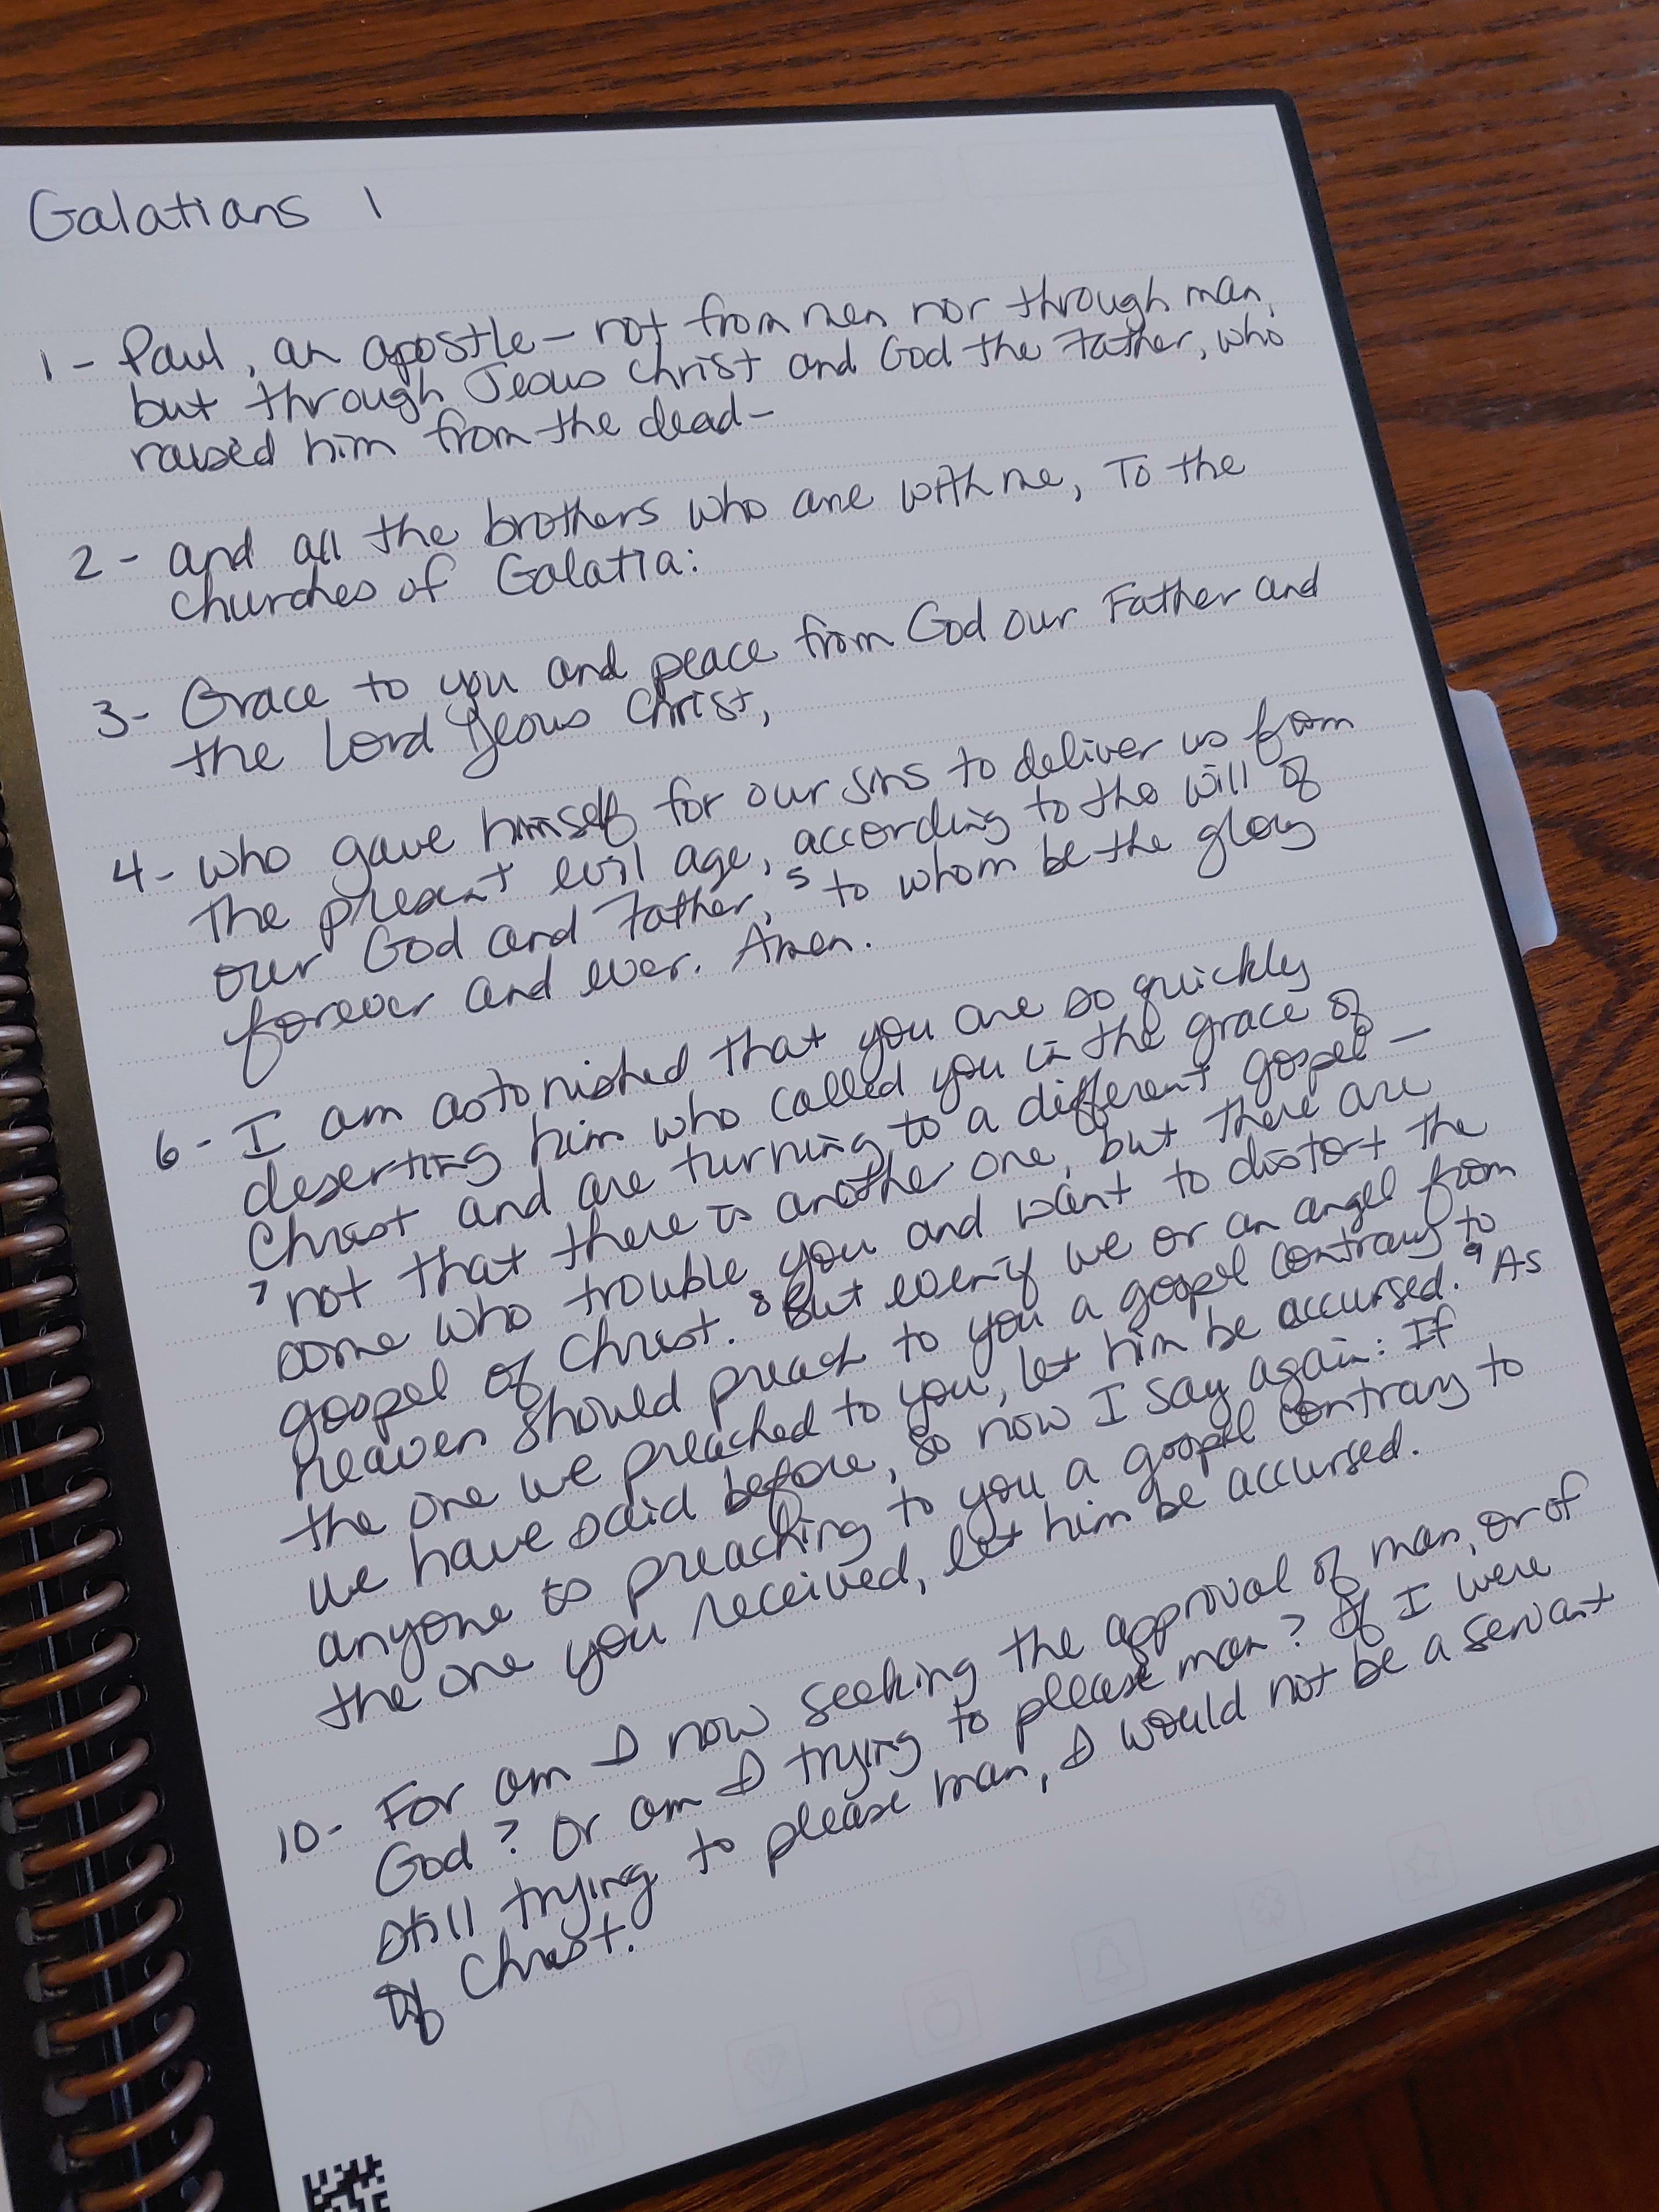 Galatians 1
1- Paul, an apostle- not from men nor through man,
but through Jesus Christ and God the Father, who
raised him from the dead-
2- and all the brothers who are with me, To the
churches of Galatia:
3- Grace to you and peace from God our Father and
the Lord Jesus Christ,
4- who gave himself for our sins to deliver us from
the present evil age, according to the will of
our God and Father, 5 to whom be the glory
forever and ever. Amen.
6- I am astonished that you are so quickly
deserting him who called you in the grace of
Christ and are turning to a different gospel-
7 not that there is another one, but there are
some who trouble you and want to distort the
gospel of Christ. 8 But even if we or an angel from
heaven should preach to you a gospel contrary to
the one we preached to you, let him be accursed. 9 As
we have said before, so now I say again: If
anyone is preaching to you a gospel contrary to
the one you received, let him be accursed.
10- For am I now seeking the approval of man, or of
God? Or am I trying to please man? If I were
still trying to please man, I would not be a servant
of Christ.